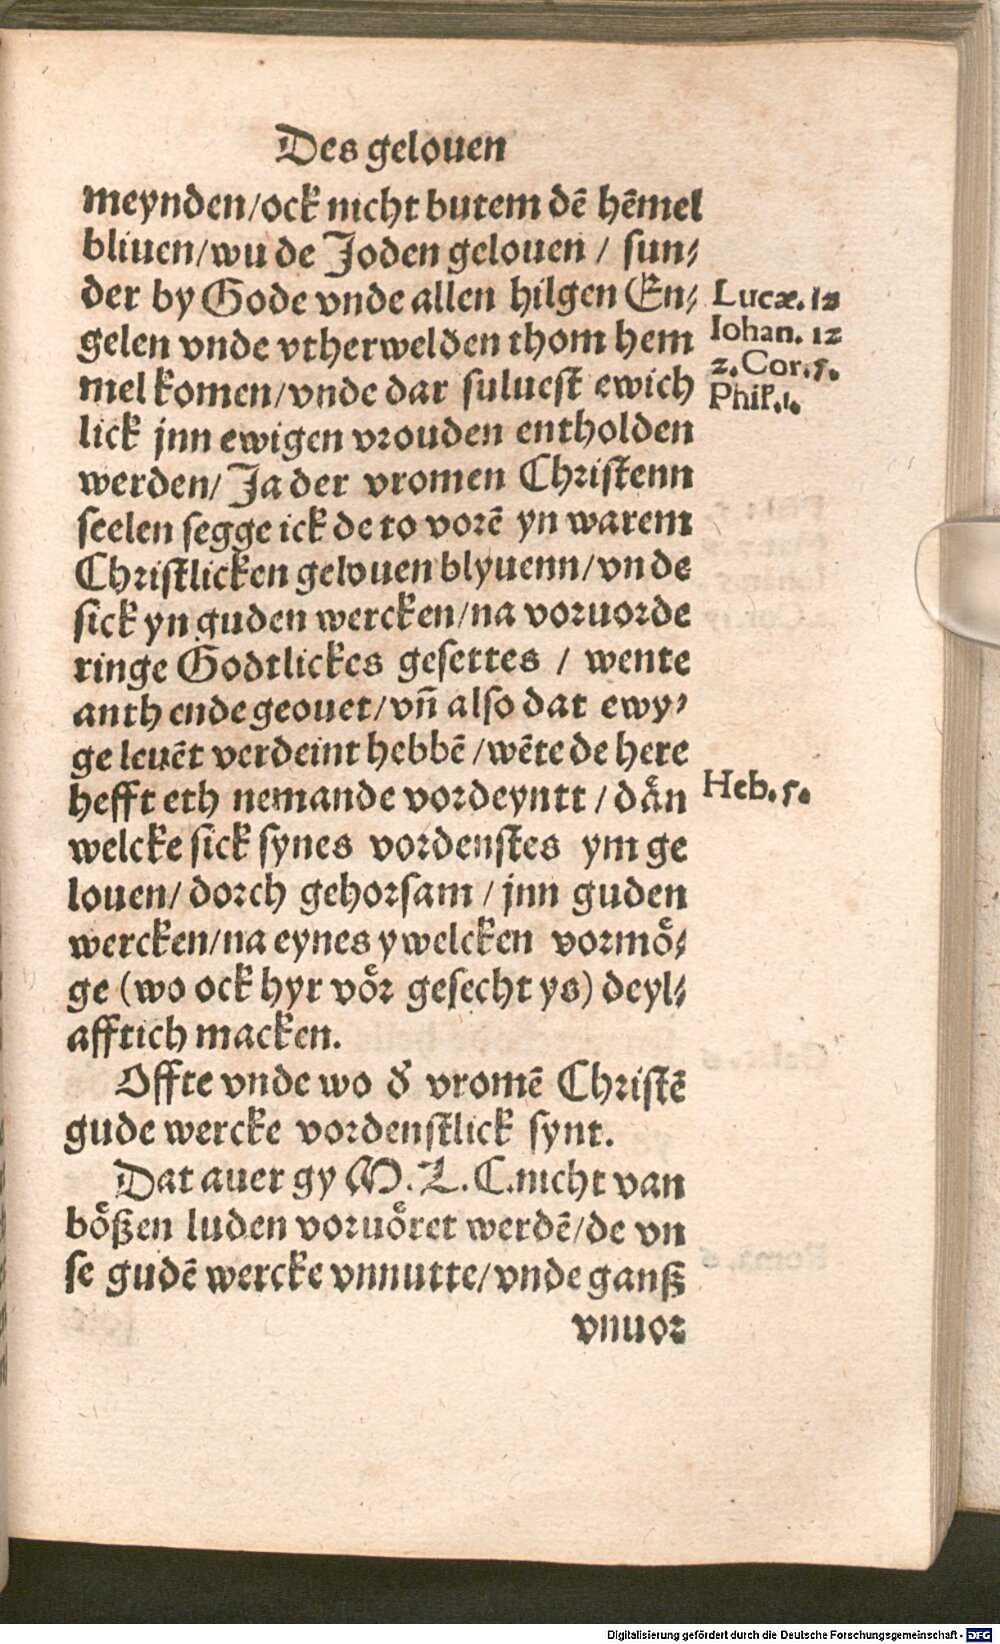 Des gelouen
meynden/ock nicht butem dē hēmel
bliuen/wu de Joden gelouen / sun⸗
der by Gode vnde allen hilgen En⸗
gelen vnde vtherwelden thom hem
mel komen/vnde dar suluest ewich
lick jnn ewigen vrouden entholden
werden/ Ja der vromen Christenn
seelen segge ick de to vorē yn warem
Christlicken gelouen blyuenn/vnde
sick yn guden wercken/na voruorde
ringe Godtlickes gesettes / wente
anth ende geouet/vn̄ also dat ewy⸗
ge leuēt verdeint hebbē/wēte de here
hefft eth nemande vordeyntt/dån
welcke sick synes vordenstes ym ge
louen/dorch gehorsam/jnn guden
wercken/na eynes ywelcken vormoͤ⸗
ge (wo ock hyr voͤr gesecht ys) deyl⸗
afftich macken.
Offte vnde wo d' vromē Christē
gude wercke vordenstlick synt.
Dat auer gy M. L. C. nicht van
boͤßen luden voruoͤret werdē/de vn
se gudē wercke vnnutte/vnde ganß
vnuor
Lucæ. 12
Iohan. 12
2. Cor. 5.
Phil. 1.
Heb. 5.
Digitalisierung gefördert durch die Deutsche Forschungsgemeinschaft - DFG